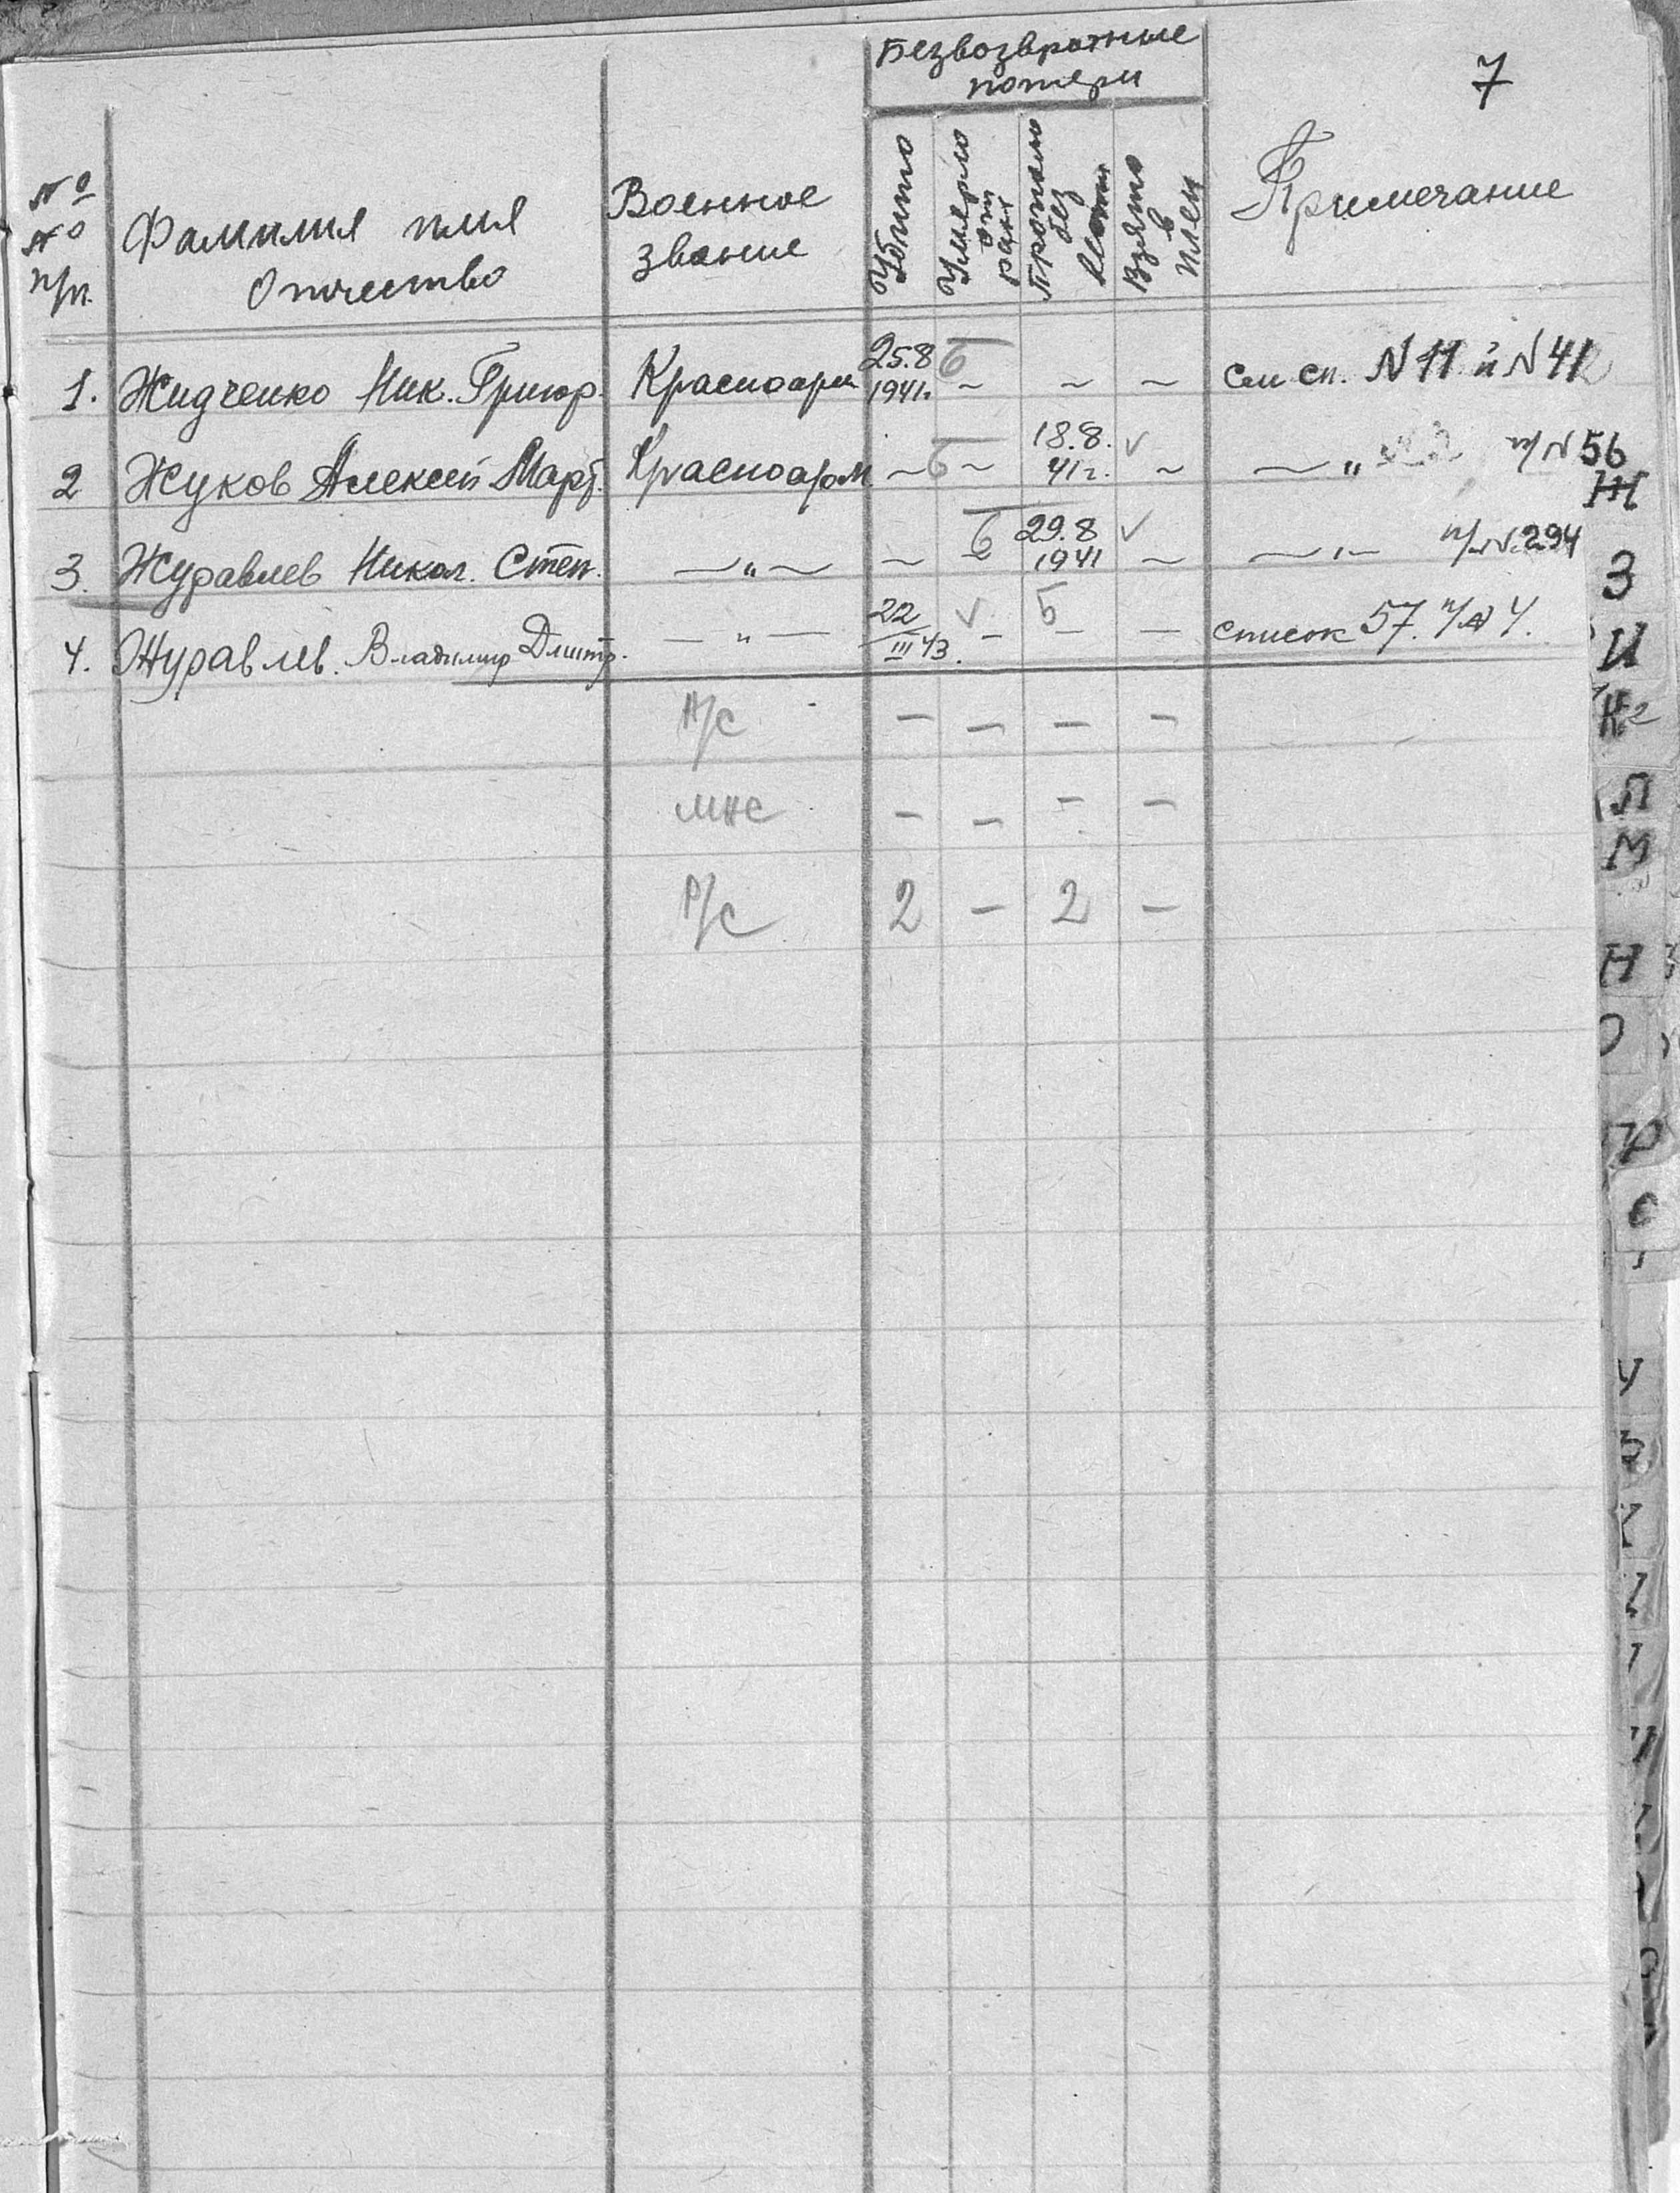 7
Безвозвратные
потери
№
№
п/п.
Фамилия имя
Отчество
Военное
звание
Убито
Умерло
от
ран
Пропало
без
вести
Взято
в
плен
Примечание
1. Жидченко Ник. Григор. Красноарм 25.8 1941г. Б ~ ~ ~ см сп. N 11 и N 412
2 Жуков Алексей Март. Красноарм ~ Б ~ 18.8. 41г. ✓ ~ — " п/N 56
3. Журавлев Никол. Степ. — " — ~ Б ~ 29.8 1941 ✓ ~ — " — п/N. 294
4. Журавлев. Владимир Дмитр. — " — 22 III 43. ✓ – Б – — список 57. п/№ 4.
Н/С – – – –
МНС – – – –
Р/С 2 – 2 –
Ж
З
И
К
Л
М
Н
О
П
Р
С
У